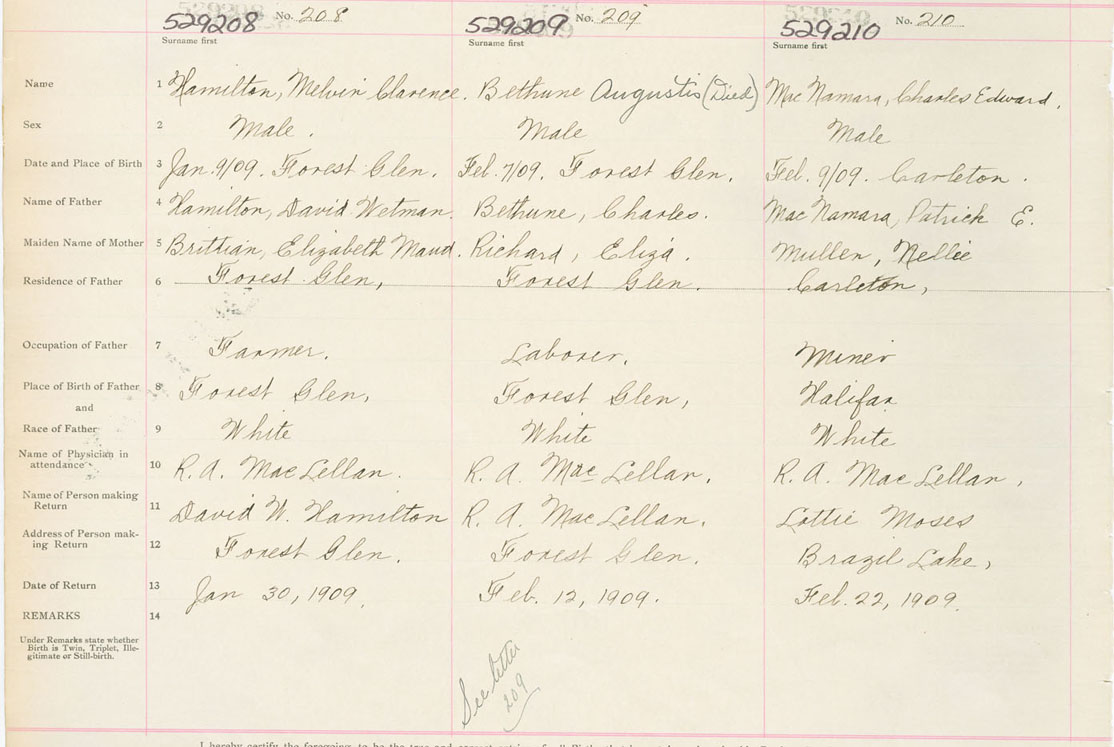 529208 No. 208 529209 No. 209 529210 No. 210
Surname first Surname first Surname first
Name 1 Hamilton, Melvin Clarence. Bethune Augustis (Died) Mac Namara, Charles Edward.
Sex 2 Male. Male Male
Date and Place of Birth 3 Jan. 9/09. Forest Glen. Feb. 7/09. Forest Glen. Feb. 9/09. Carleton.
Name of Father 4 Hamilton, David Wetman. Bethune, Charles. Mac Namara, Patrick E.
Maiden Name of Mother 5 Brittian, Elizabeth Maud. Richard, Eliza. Mullen, Nellie
Residence of Father 6 Forest Glen, Forest Glen. Carleton,
Occupation of Father 7 Farmer. Laborer. Miner
Place of Birth of Father 8 Forest Glen, Forest Glen, Halifax
and
Race of Father 9 White White White
Name of Physician in
attendance 10 R. A. MacLellan. R. A. MacLellan. R. A. MacLellan,
Name of Person making
Return 11 David W. Hamilton R. A. MacLellan. Lottie Moses
Address of Person mak-
ing Return 12 Forest Glen. Forest Glen. Brazil Lake,
Date of Return 13 Jan 30, 1909. Feb. 12, 1909. Feb. 22, 1909.
REMARKS 14
Under Remarks state whether
Birth is Twin, Triplet, Ille-
gitimate or Still-birth.
See letter
209
I hereby certify the foregoing to be the true and correct